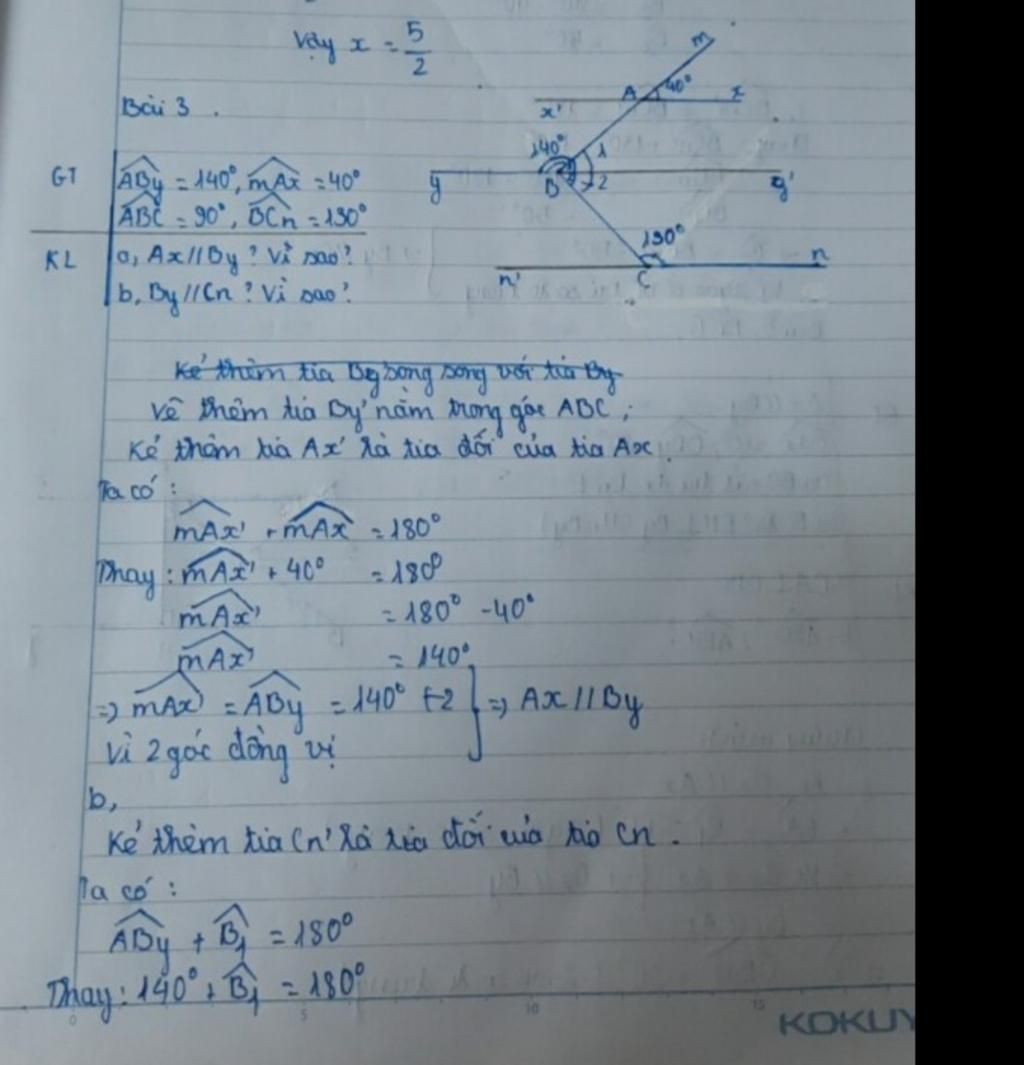 Vậy x = 5/2
Bài 3.
m
A 40° x
x'
140° 1
y B 2 y'
130°
n' C n
GT
ABy = 140°, mAx = 40°
ABC = 90°, BCn = 130°
KL
a, Ax // By ? Vì sao?
b, By // Cn ? Vì sao?
Kẻ thêm tia By song song với tia By
Vẽ thêm tia By' nằm trong góc ABC;
Kẻ thêm tia Ax' là tia đối của tia Ax.
Ta có:
mAx' + mAx = 180°
Thay: mAx' + 40° = 180°
mAx' = 180° - 40°
mAx' = 140°
=> mAx' = ABy = 140°
=> Ax // By
Vì 2 góc đồng vị
b,
Kẻ thêm tia Cn' là tia đối của tia Cn.
Ta có:
ABy + B1 = 180°
Thay: 140° + B1 = 180°
0 5 10 15
KOKUY